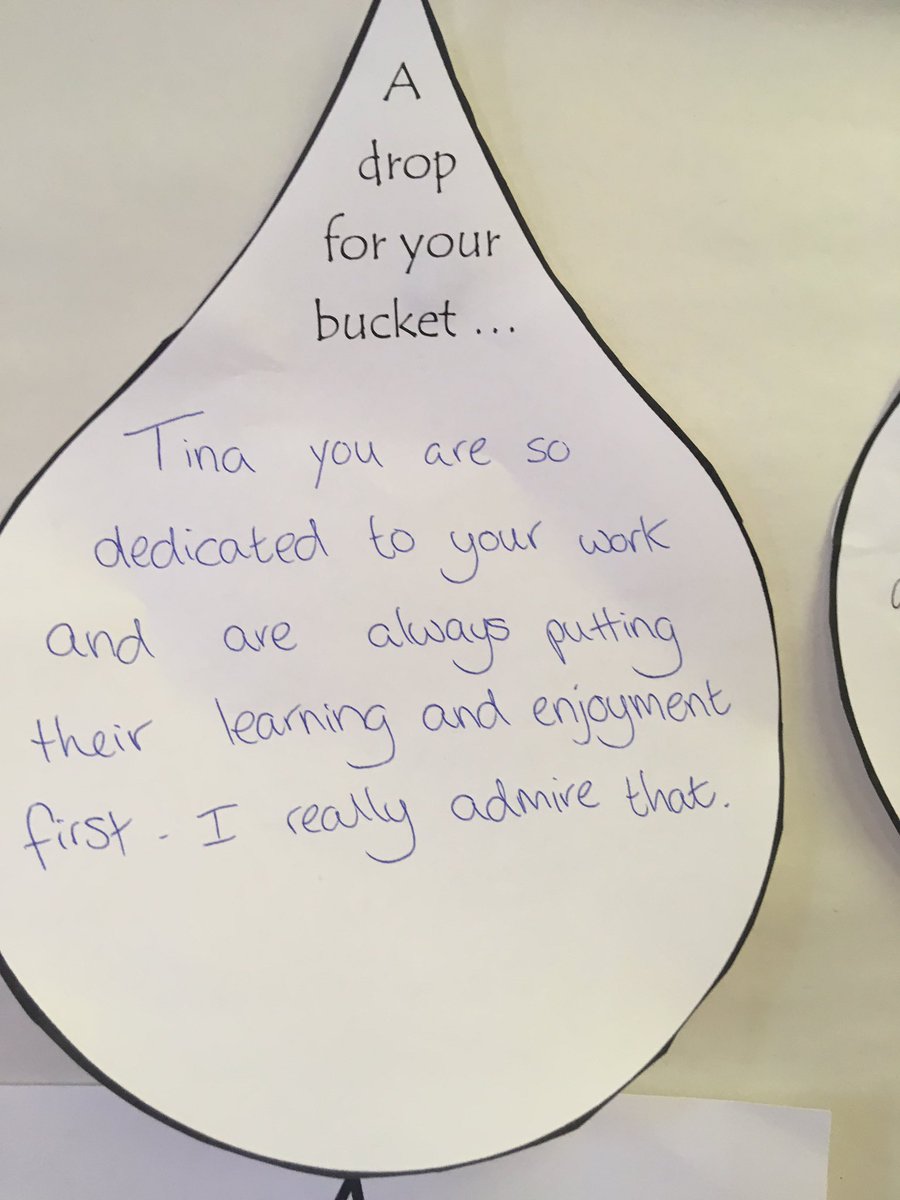 A
drop
for your
bucket ...
Tina you are so
dedicated to your work
and are always putting
their learning and enjoyment
first. I really admire that.